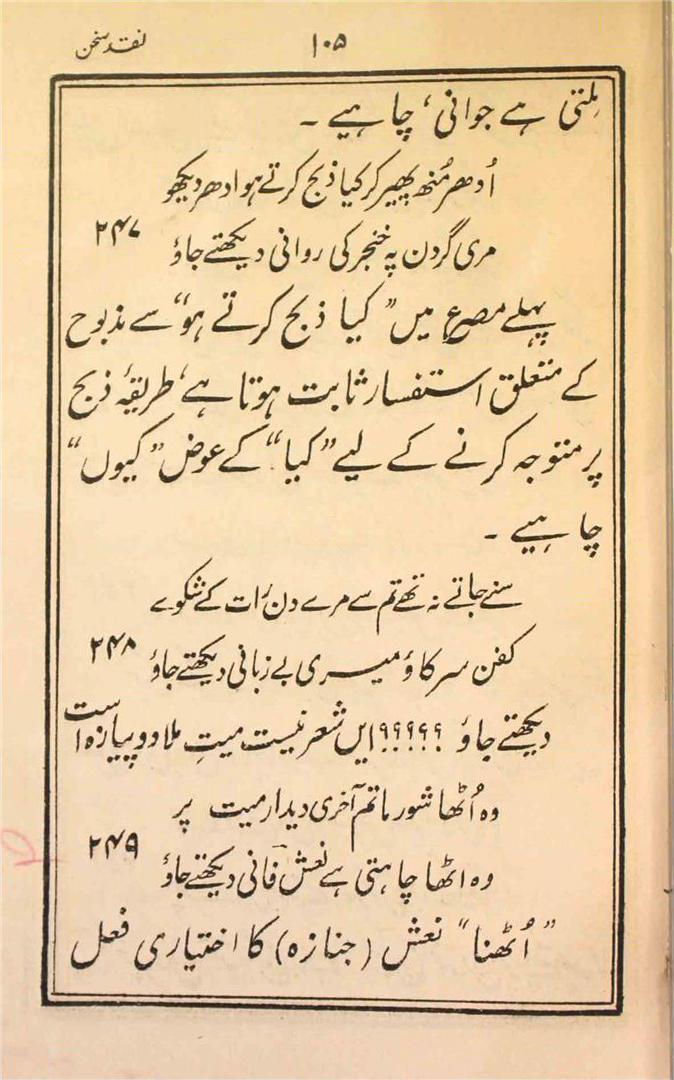 نقد سخن ۱۰۵
ملتی ہے جوانی، چاہیے ۔
اُدھر مُنھ پھیر کر کیا ذبح کرتے ہو ادھر دیکھو
مری گردن پہ خنجر کی روانی دیکھتے جاؤ ۲۴۷
پہلے مصرع میں ”کیا ذبح کرتے ہو“ سے مذبوح
کے متعلق استفسار ثابت ہوتا ہے، طریقۂ ذبح
پر متوجہ کرنے کے لیے ”کیا“ کے عوض ”کیوں“
چاہیے ۔
سنے جاتے نہ تھے تم سے مرے دن رات کے شکوے
کفن سرکاؤ میری بے زبانی دیکھتے جاؤ ۲۴۸
دیکھتے جاؤ ؟؟؟؟؟ ایں شعر نیست میتِ ملا دو پیازہ است
وہ اُٹھا شور ماتم آخری دیدار میت پر
وہ اٹھا چاہتی ہے نعش فانی دیکھتے جاؤ ۲۴۹
”اُٹھنا“ نعش (جنازہ) کا اختیاری فعل